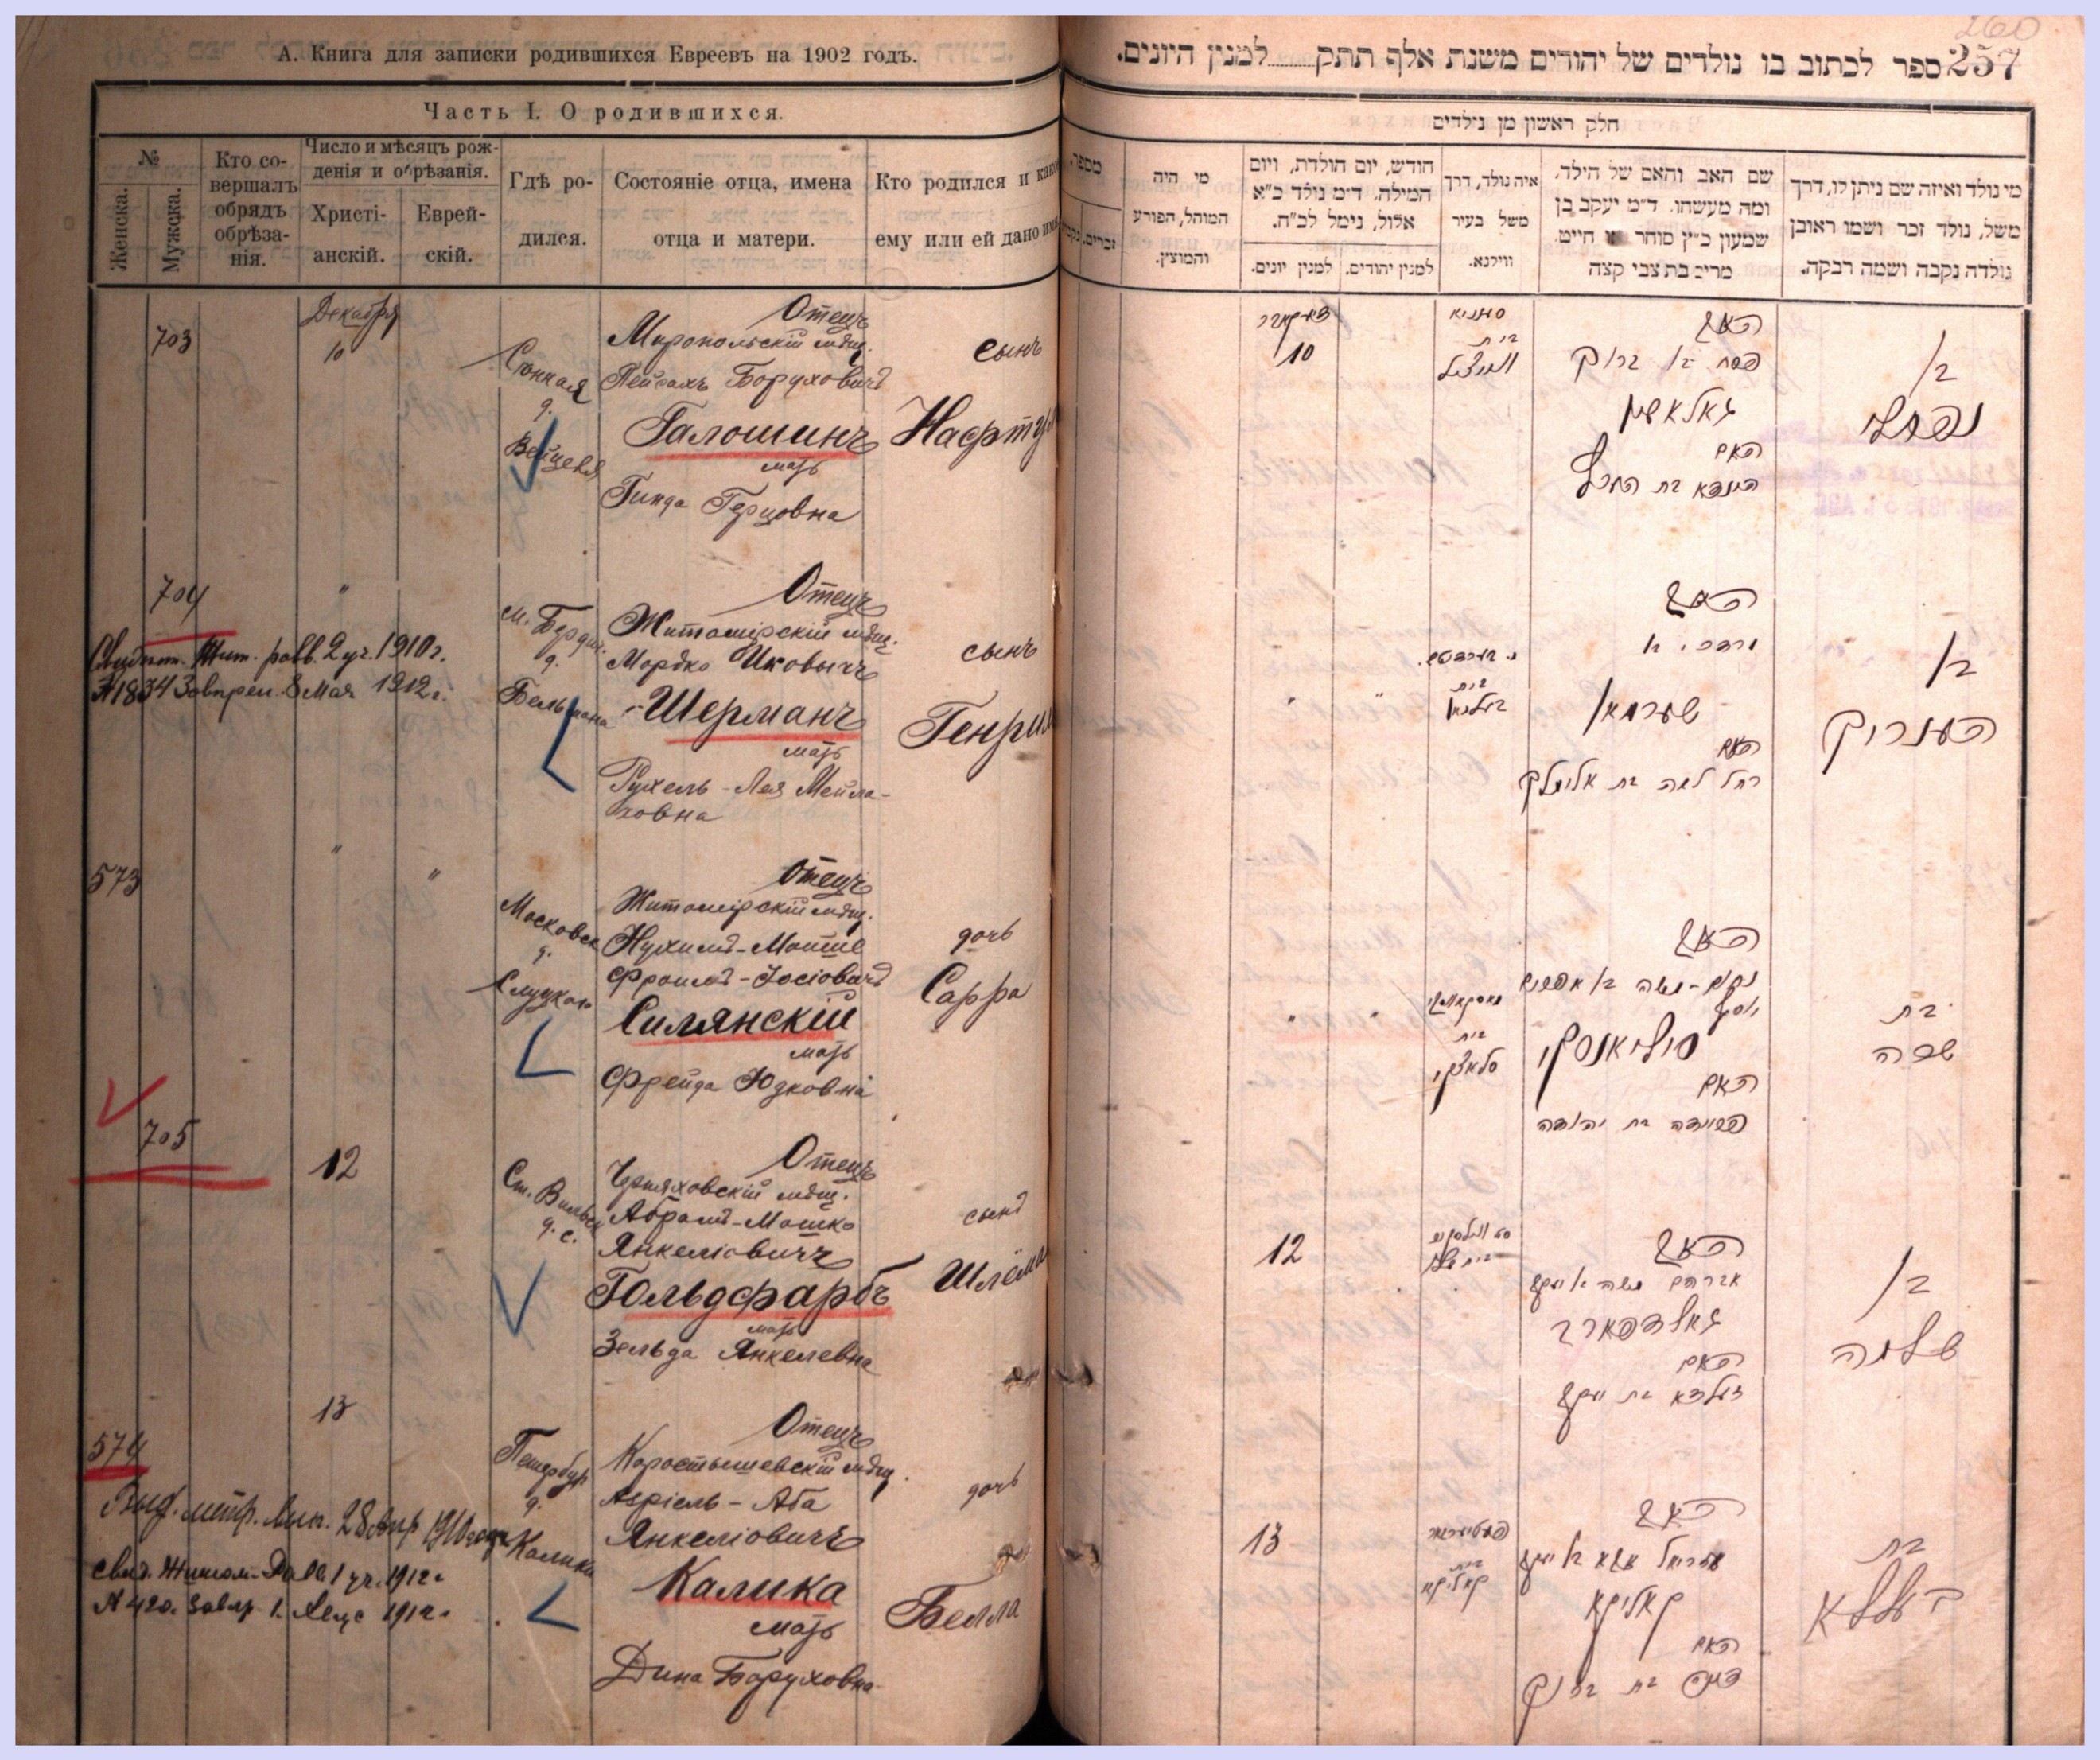 А. Книга для записки родившихся Евреевъ на 1902 годъ.
Часть I. О родившихся.
№
Женска.
Мужска.
Кто со-
вершалъ
обрядъ
обрѣза-
нія.
Число и мѣсяцъ рож-
денія и обрѣзанія.
Христі-
анскій.
Еврей-
скій.
Гдѣ ро-
дился.
Состояніе отца, имена
отца и матери.
Кто родился и како
ему или ей дано имя
703
Декабря
10
Сѣнная
д.
Отецъ
Миропольскій мѣщ.
Пейсахъ Боруховичъ
Галошинъ
мать
Гинда Герцовна
сынъ
Нафтул
704
"
Свидѣт. Жит. равв. 2 уч. 1910 г.
8 Мая 1912 г.
М. Бердич.
д.
Бельмана
Отецъ
Житомірскій мѣщ.
Мордко Ицковичъ
Шерманъ
мать
Рухель-Лея Мейла-
ховна
сынъ
Генрих
573
"
"
Московск
д.
Слуцкаго
Отецъ
Житомірскій мѣщ.
Нухимъ-Мошше
Фроимъ-Іосіовичъ
Силянскій
мать
Фрейда Юдковна
дочь
Сарра
705
12
Ст. Вильск
д. с.
Отецъ
Черняховскій мѣщ.
Абрамъ-Мошко
Янкеліовичъ
Гольдфарбъ
мать
Зельда Янкелевна
сынъ
Шлёма
13
574
Выд. метр. вып. 28 апр 1910
Свид. Житом. Равв. 1 уч. 1912 г.
№ 420.
Петербур
д.
Калики
Отецъ
Коростышевскій мѣщ.
Азріель-Аба
Янкеліовичъ
Калика
мать
Дина Боруховна
дочь
Белла
260
257 ספר לכתוב בו נולדים של יהודים משנת אלף תתק למנין היונים.
חלק ראשון מן נולדים
מי נולד ואיזה שם ניתן לו, דרך
משל, נולד זכר ושמו ראובן
נולדה נקבה ושמה רבקה.
שם האב והאם של הילד,
ומה מעשהו. ד"מ יעקב בן
שמעון כ"ץ סוחר או חייט.
מרים בת צבי קצה
איה נולד, דרך
משל בעיר
ווילנא.
חודש, יום הולדת, ויום
המילה. ד"מ נולד כ"א
אלול, נימל לכ"ח.
למנין יהודים.
למנין יונים.
מי היה
המוהל, הפורע
והמוצץ.
מספר
זכרים.
דעקאבר
10
בית
האב
פסח בן ברוך
גאלאשין
האם
הינדא בת הערץ
בן
נפתלי
"
"
בית
האב
מרדכי בן
שערמאן
האם
רחל לאה בת אלימלך
בן
הענריק
"
"
בית
האב
נחום-משה בן אפרים
יוסף
סיליאנסקי
האם
פריידה בת יהודה
בת
שרה
12
האב
אברהם משה בן יעקב
גאלדפארב
האם
זעלדא בת יעקב
בן
שלמה
13
בית
קאליקא
האב
עזריאל אבא בן יעקב
קאליקא
האם
דינה בת ברוך
בת
בעללא